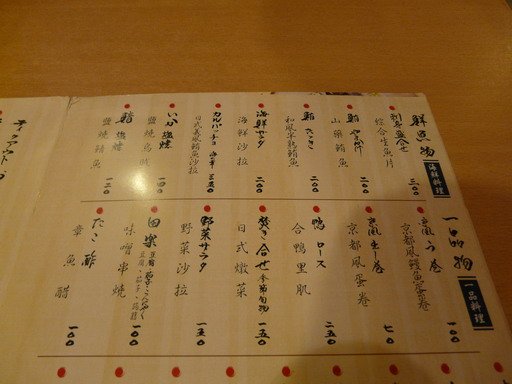 鮮魚物
海鮮料理
刺身盛合せ
綜合生魚片
三〇〇
鮪やまかけ
山藥鮪魚
二〇〇
鮪たたき
和風半熟鮪魚
二〇〇
海鮮サラダ
海鮮沙拉
二〇〇
カルパッチョ
日式義風鮪魚沙拉
いか塩焼
一四〇
塩焼
鹽燒鯖魚
一二〇
一品物
一品料理
う巻
京都風鰻魚蛋卷
一〇〇
京風出し巻
京都風蛋卷
七〇
鴨ロース
合鴨里肌
二五〇
焚き合せ
日式燉菜
一五〇
野菜サラダ
野菜沙拉
一五〇
田楽
味噌串燒
一〇〇
たこ酢
章魚醋
一〇〇
テイクアウト